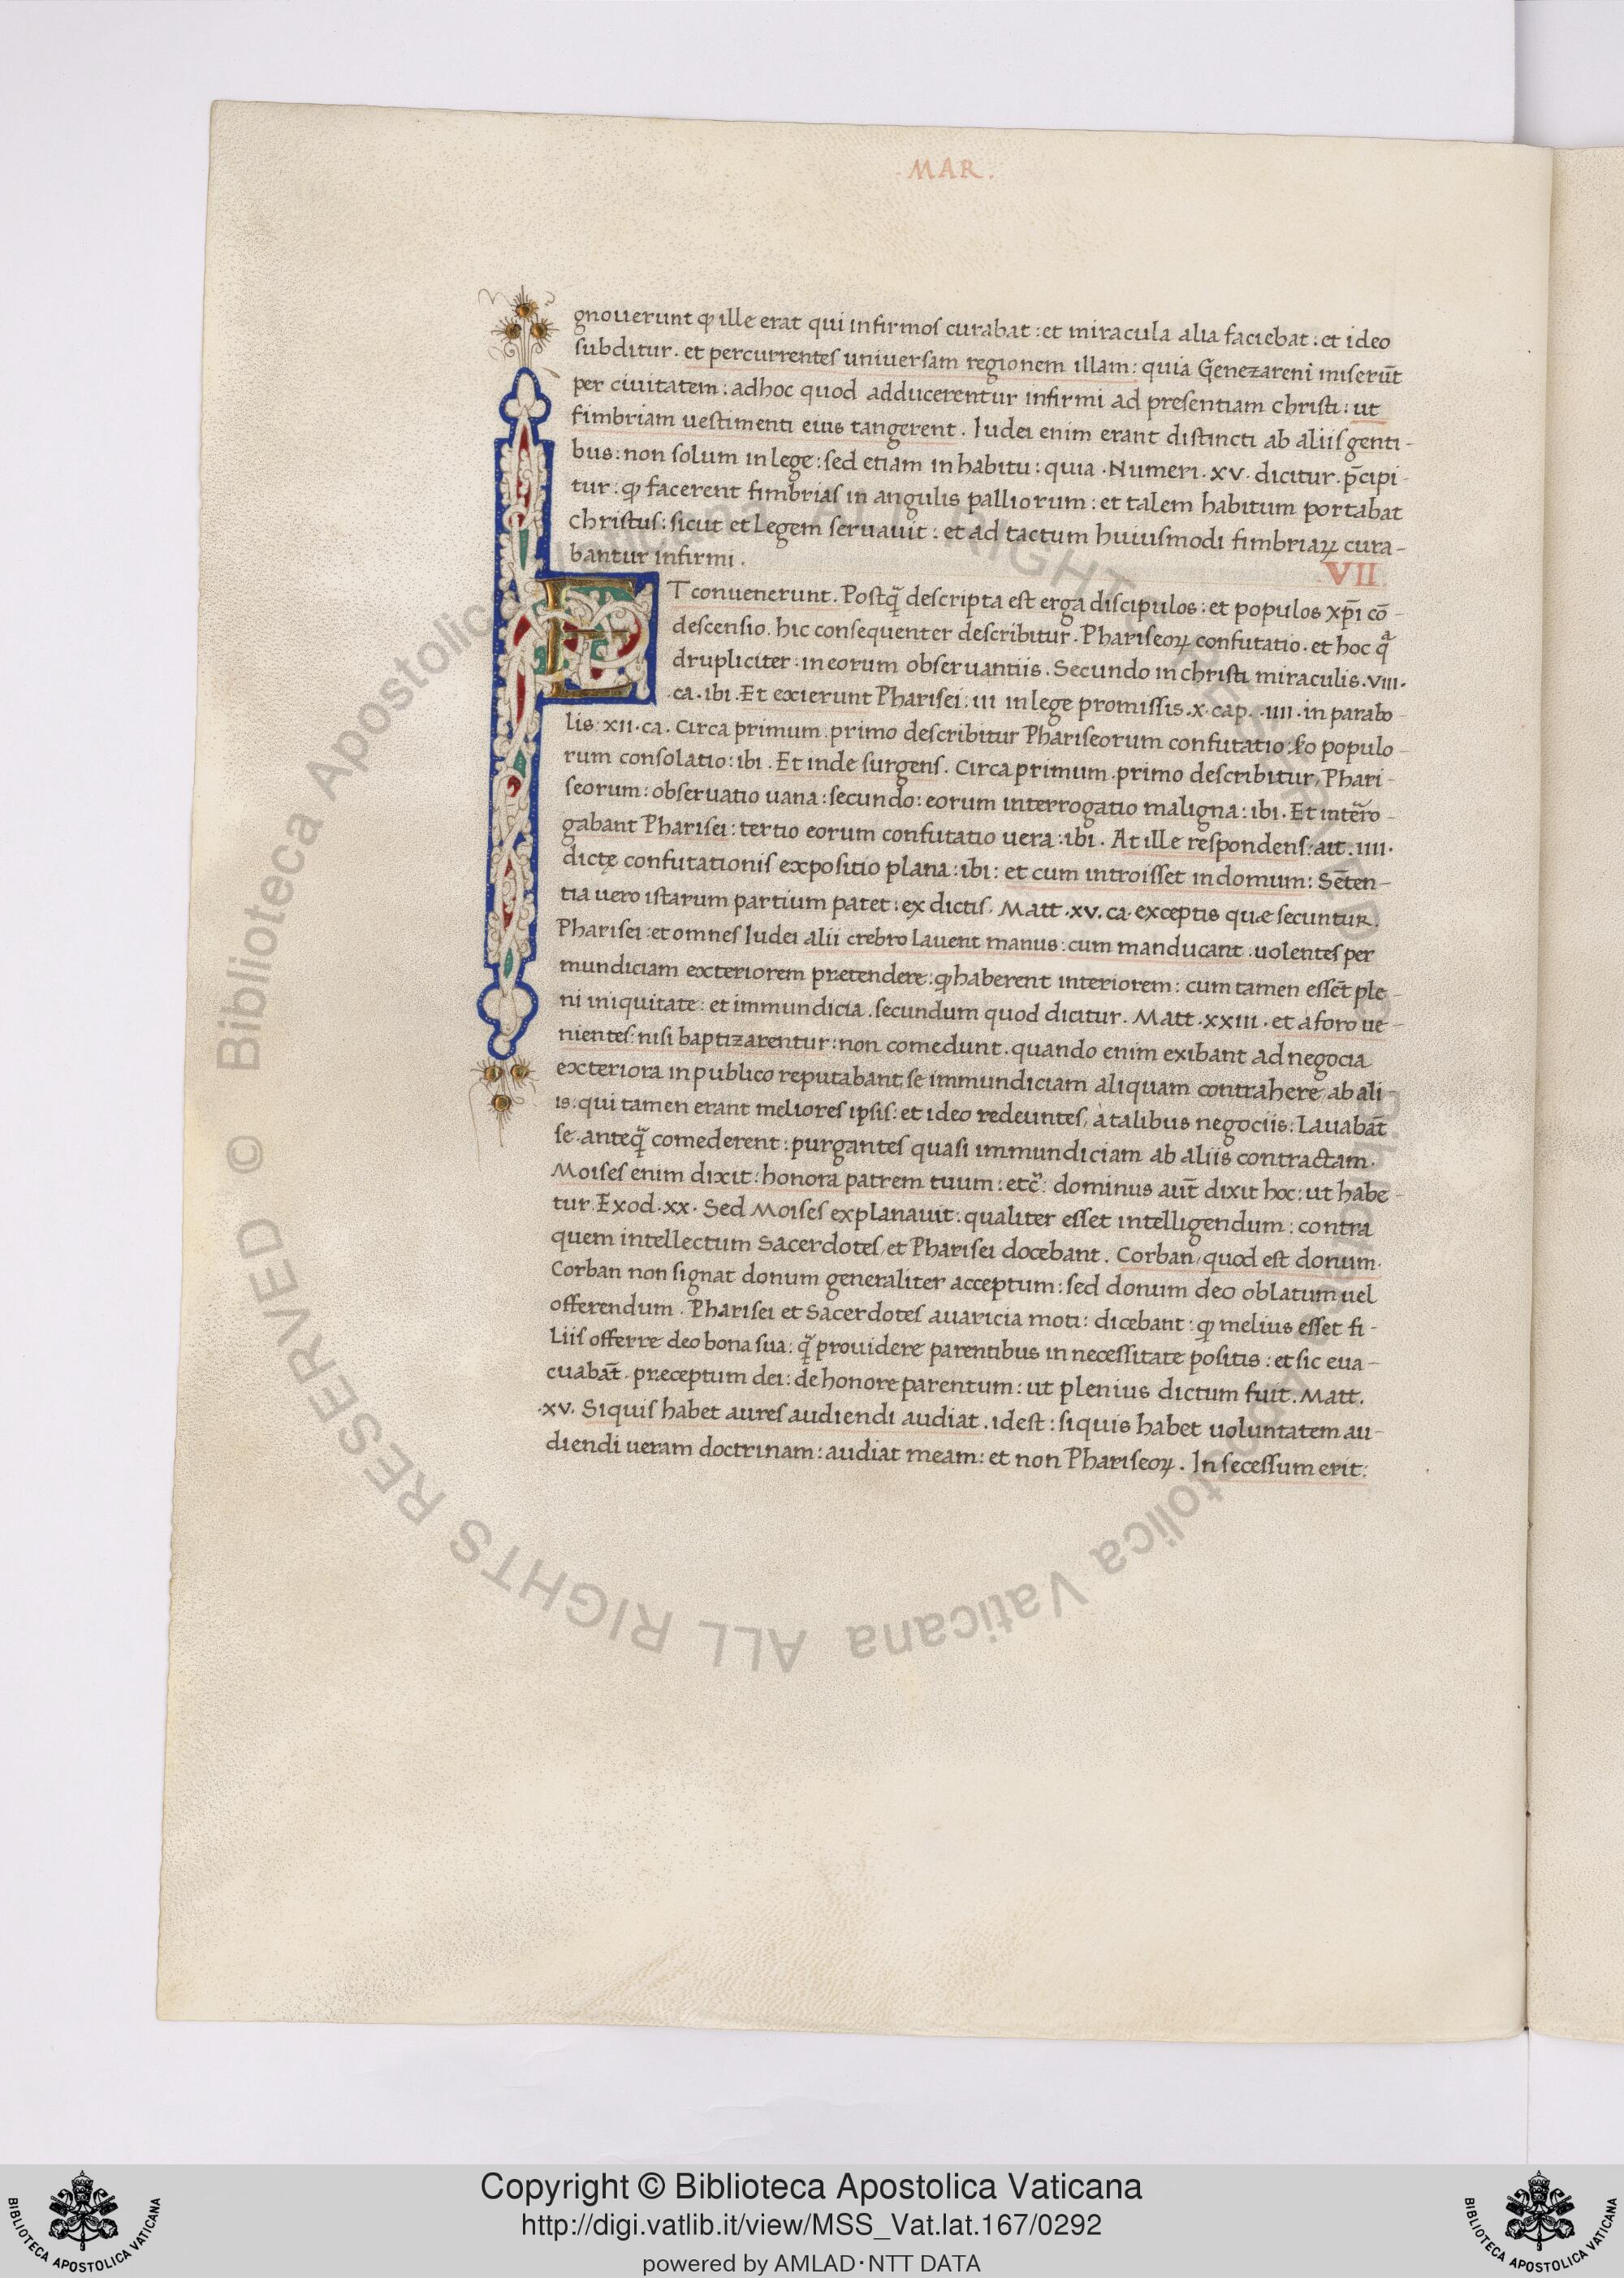 .MAR.
gnouerunt ꝙ ille erat qui infirmos curabat: et miracula alia faciebat: et ideo
subditur. et percurrentes uniuersam regionem illam: quia Genezareni miserūt
per ciuitatem: adhoc quod adducerentur infirmi ad presentiam christi: ut
fimbriam uestimenti eius tangerent. Iudei enim erant distincti ab aliis genti-
bus: non solum in lege: sed etiam in habitu: quia .Numeri. xv. dicitur. p̄cipi-
tur: ꝙ facerent fimbrias in angulis palliorum: et talem habitum portabat
christus: sicut et legem seruauit: et ad tactum huiusmodi fimbriaꝝ cura-
bantur infirmi.
.VII.
ET conuenerunt. Postq̃ descripta est erga discipulos: et populos xp̄i cō-
descensio. hic consequenter describitur. Phariseoꝝ confutatio. et hoc q̃
drupliciter: in eorum obseruantiis. Secundo in christi miraculis. VIII.
ca. ibi. Et exierunt Pharisei: III in lege promissis. x. cap. IIII. in parabo-
lis: XII. ca. Circa primum. primo describitur Phariseorum confutatio. populo-
rum consolatio: ibi. Et inde surgens. Circa primum. primo describitur, Phari-
seorum: obseruatio uana: secundo: eorum interrogatio maligna: ibi. Et inter̄o-
gabant Pharisei: tertio eorum confutatio uera: ibi. At ille respondens: ait. IIII.
dictę confutationis expositio plana: ibi: et cum introisset in domum: Sēten-
tia uero istarum partium patet: ex dictis. Matt. xv. ca. exceptis quæ secuntur.
Pharisei: et omnes Iudei alii crebro lauent manus: cum manducant. uolentes per
mundiciam exteriorem prætendere: ꝙ haberent interiorem: cum tamen essēt ple-
ni iniquitate: et immundicia. secundum quod dicitur. Matt. xxIII. et a foro ue-
nientes: nisi baptizarentur: non comedunt. quando enim exibant ad negocia
exteriora in publico reputabant se immundiciam aliquam contrahere, ab ali-
is: qui tamen erant meliores ipsis: et ideo redeuntes, à talibus negociis: Lauabāt
se. anteq̃ comederent: purgantes quasi immundiciam ab aliis contractam.
Moises enim dixit: honora patrem tuum: etc̃: dominus aūt dixit hoc: ut habe-
tur. Exod. xx. Sed Moises explanauit: qualiter esset intelligendum: contra
quem intellectum Sacerdotes, et Pharisei docebant. Corban, quod est donum.
Corban non signat donum generaliter acceptum: sed donum deo oblatum uel
offerendum. Pharisei et Sacerdotes auaricia moti: dicebant: ꝙ melius esset fi-
liis offerre deo bona sua: q̃ prouidere parentibus in necessitate positis: et sic eua-
cuabāt. præceptum dei: de honore parentum: ut plenius dictum fuit. Matt.
.xv. Siquis habet aures audiendi audiat. idest: siquis habet uoluntatem au-
diendi ueram doctrinam: audiat meam: et non Phariseoꝝ. In secessum erit:
© Biblioteca Apostolica Vaticana ALL RIGHTS RESERVED
Copyright © Biblioteca Apostolica Vaticana
http://digi.vatlib.it/view/MSS_Vat.lat.167/0292
powered by AMLAD·NTT DATA
BIBLIOTECA APOSTOLICA VATICANA
BIBLIOTECA APOSTOLICA VATICANA